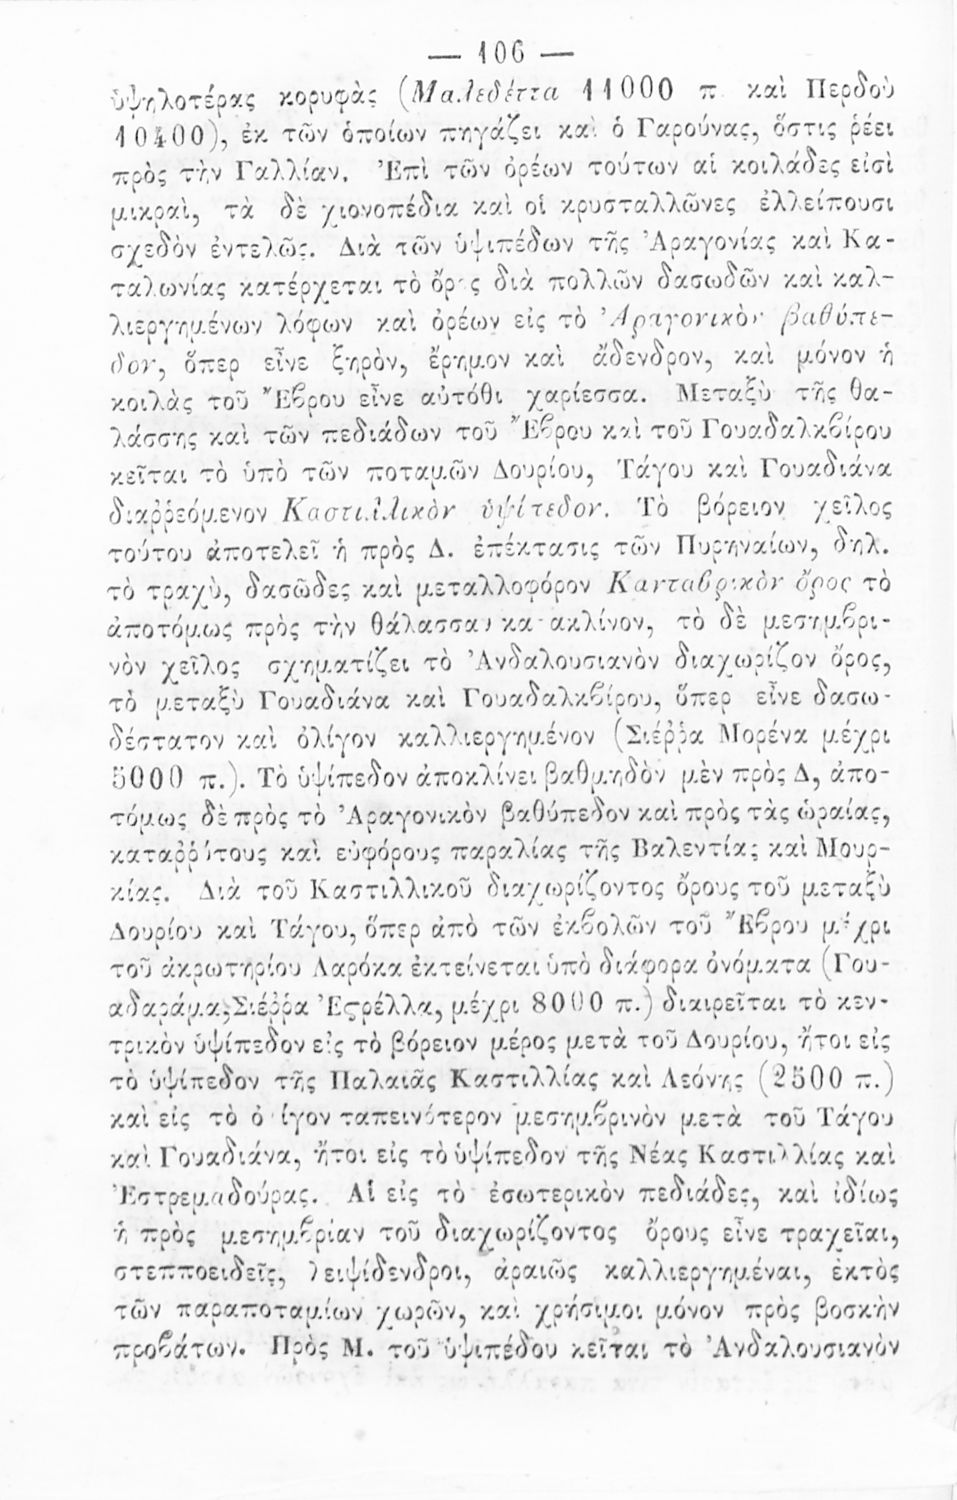 — 106 —
ὑψηλοτέρας κορυφὰς (Μαλεδέττα 11000 π καὶ Περδοὺ
10400), ἐκ τῶν ὁποίων πηγάζει καὶ ὁ Γαρούνας, ὅστις ῥέει
πρὸς τὴν Γαλλίαν. Ἐπὶ τῶν ὀρέων τούτων αἱ κοιλάδες εἰσὶ
μικραὶ, τὰ δὲ χιονοπέδια καὶ οἱ κρυσταλλῶνες ἐλλείπουσι
σχεδὸν ἐντελῶς. Διὰ τῶν ὑψιπέδων τῆς Ἀραγονίας καὶ Κα-
ταλωνίας κατέρχεται τὸ ὄρος διὰ πολλῶν δασωδῶν καὶ καλ-
λιεργημένων λόφων καὶ ὀρέων εἰς τὸ Ἀραγονικὸν βαθύπε-
δον, ὅπερ εἶνε ξηρὸν, ἔρημον καὶ ἄδενδρον, καὶ μόνον ἡ
κοιλὰς τοῦ Ἔβρου εἶνε αὐτόθι χαρίεσσα. Μεταξὺ τῆς θα-
λάσσης καὶ τῶν πεδιάδων τοῦ Ἔβρου καὶ τοῦ Γουαδαλκβίρου
κεῖται τὸ ὑπὸ τῶν ποταμῶν Δουρίου, Τάγου καὶ Γουαδιάνα
διαῤῥεόμενον Καστιλλικὸν ὑψίπεδον. Τὸ βόρειον χεῖλος
τούτου ἀποτελεῖ ἡ πρὸς Δ. ἐπέκτασις τῶν Πυρηναίων, δηλ.
τὸ τραχὺ, δασῶδες καὶ μεταλλοφόρον Κανταβρικὸν ὄρος τὸ
ἀποτόμως πρὸς τὴν θάλασσαν κατακλίνον, τὸ δὲ μεσημβρι-
νὸν χεῖλος σχηματίζει τὸ Ἀνδαλουσιανὸν διαχωρίζον ὄρος,
τὸ μεταξὺ Γουαδιάνα καὶ Γουαδαλκβίρου, ὅπερ εἶνε δασω-
δέστατον καὶ ὀλίγον καλλιεργημένον (Σιέῤῥα Μορένα μέχρι
5000 π.). Τὸ ὑψίπεδον ἀποκλίνει βαθμηδὸν μὲν πρὸς Δ, ἀπο-
τόμως δὲ πρὸς τὸ Ἀραγονικὸν βαθύπεδον καὶ πρὸς τὰς ὡραίας,
καταῤῥύτους καὶ εὐφόρους παραλίας τῆς Βαλεντίας καὶ Μουρ-
κίας. Διὰ τοῦ Καστιλλικοῦ διαχωρίζοντος ὄρους τοῦ μεταξὺ
Δουρίου καὶ Τάγου, ὅπερ ἀπὸ τῶν ἐκβολῶν τοῦ Ἔβρου μέχρι
τοῦ ἀκρωτηρίου Λαρόκα ἐκτείνεται ὑπὸ διάφορα ὀνόματα (Γου-
αδαράμα, Σιέῤῥα Ἐςρέλλα, μέχρι 8000 π.) διαιρεῖται τὸ κεν-
τρικὸν ὑψίπεδον εἰς τὸ βόρειον μέρος μετὰ τοῦ Δουρίου, ἤτοι εἰς
τὸ ὑψίπεδον τῆς Παλαιᾶς Καστιλλίας καὶ Λεόνης (2500 π.)
καὶ εἰς τὸ ὀλίγον ταπεινότερον μεσημβρινὸν μετὰ τοῦ Τάγου
καὶ Γουαδιάνα, ἤτοι εἰς τὸ ὑψίπεδον τῆς Νέας Καστιλλίας καὶ
Ἐστρεμαδούρας. Αἱ εἰς τὸ ἐσωτερικὸν πεδιάδες, καὶ ἰδίως
ἡ πρὸς μεσημβρίαν τοῦ διαχωρίζοντος ὄρους εἶνε τραχεῖαι,
στεπποειδεῖς, λειψίδενδροι, ἀραιῶς καλλιεργημέναι, ἐκτὸς
τῶν παραποταμίων χωρῶν, καὶ χρήσιμοι μόνον πρὸς βοσκὴν
προβάτων. Πρὸς Μ. τοῦ ὑψιπέδου κεῖται τὸ Ἀνδαλουσιανὸν